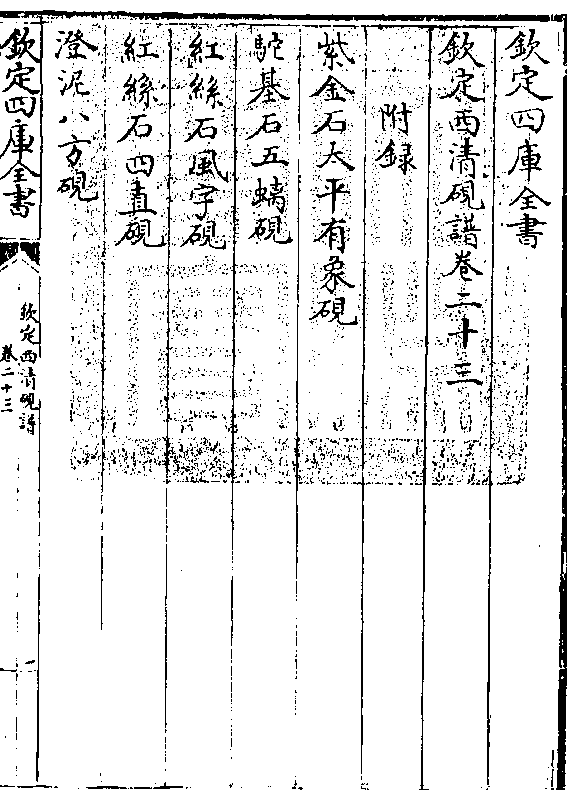 欽定四庫全書
欽定西清硯譜卷二十三
附録
紫金石太平有象硯
駝基石五螭硯
紅絲石風字硯
紅絲石四直硯
澄泥八方硯
欽定四庫全書
欽定西清硯譜
卷二十三
一